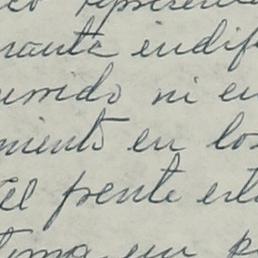 represen
rante indif
umido ni en
miento en los
El frente est
un p